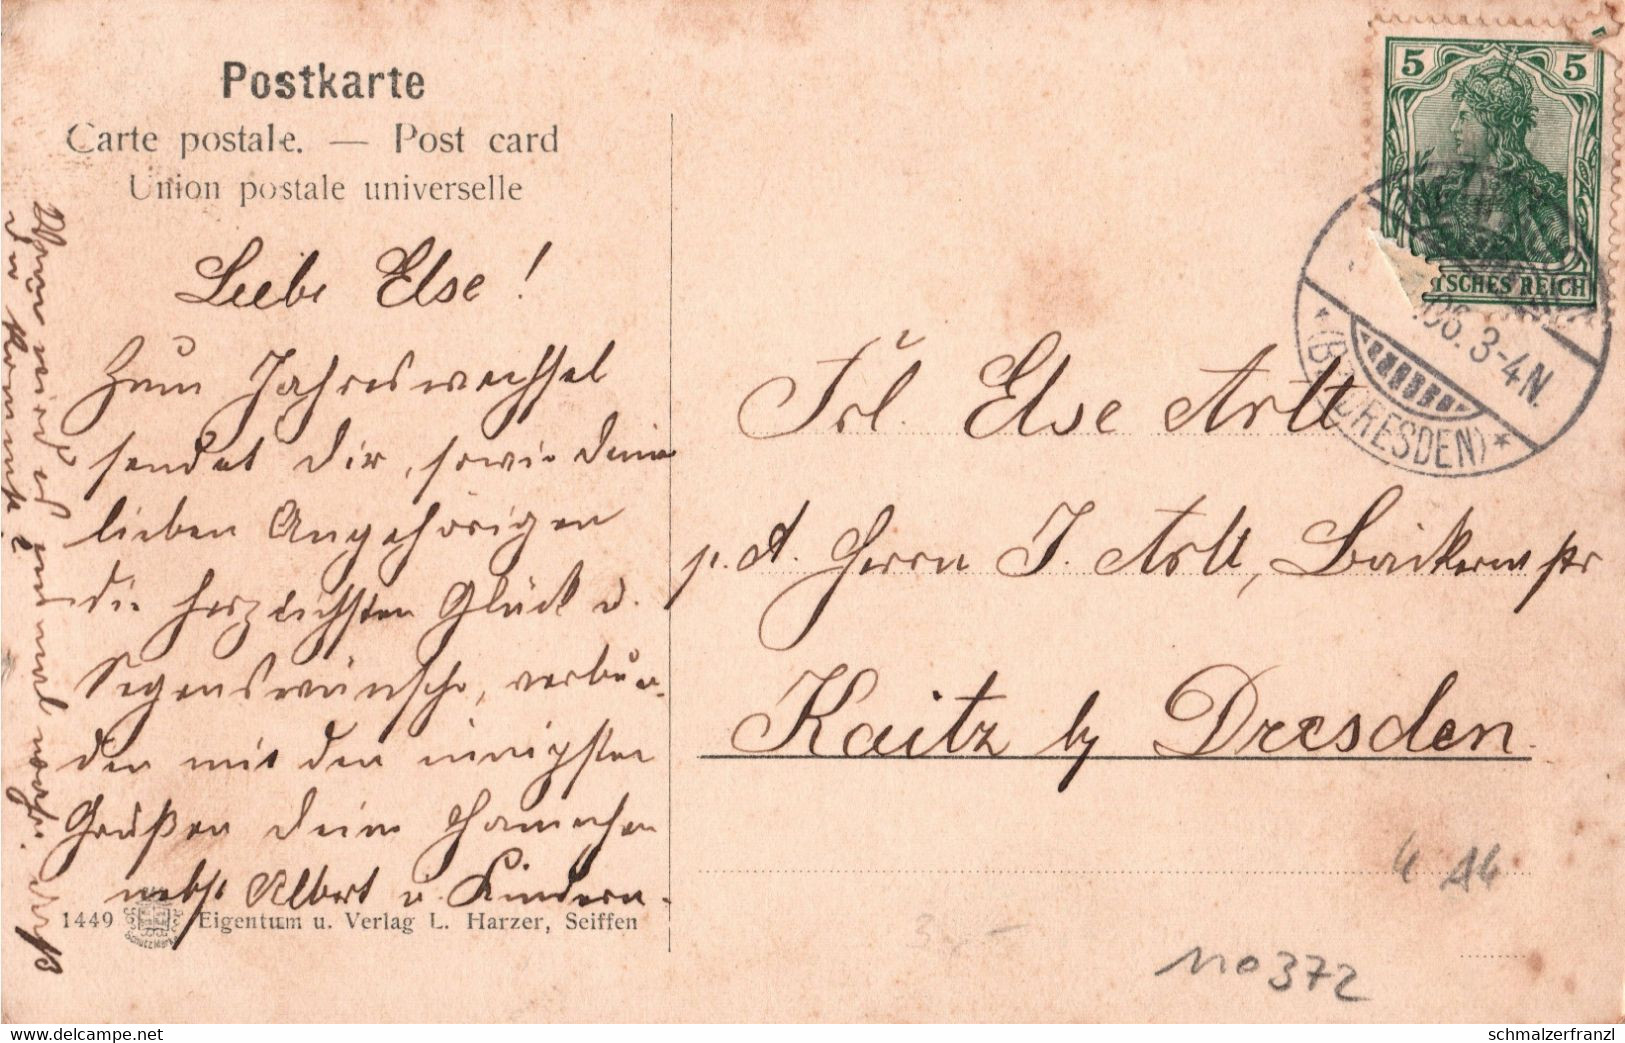 Postkarte
Carte postale. — Post card
Union postale universelle
Liebe Else!
Zum Jahreswechsel
sendet Dir, sowie Deinen
lieben Angehörigen
die herzlichsten Glück u.
Segenswünsche, verbun-
den mit den innigsten
Grüßen Deine
nebst Albert u. Kindern.
1449 Eigentum u. Verlag L. Harzer, Seiffen
Schutzmarke
Wann wirst Du mal
5 5
DEUTSCHES REICH
06. 3-4N.
*(BZ. DRESDEN)*
Frl. Else Arlt
p. A. Herrn J. Arlt, Bäckermstr
Kaitz by Dresden.
4 A4
3,-
110372
www.delcampe.net
schmalzerfranzl